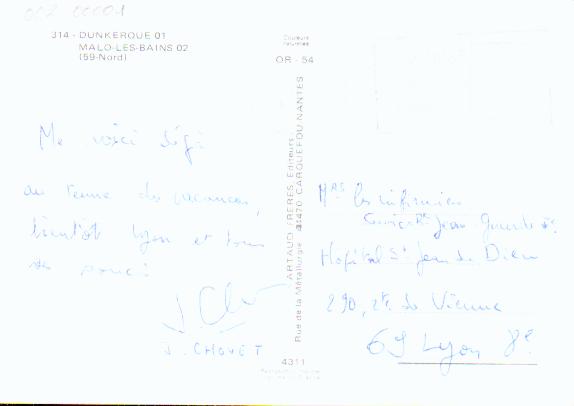 002 00001
314 - DUNKERQUE 01
MALO-LES-BAINS 02
(59-Nord)
Couleurs
naturelles
OR - 54
Me voici déjà
au terme des vacances,
bientôt Lyon et tous
ses soucis
J. CHOVET
ARTAUD FRÈRES, Editeurs
Rue de la Métallurgie 44470 CARQUEFOU NANTES
4311
Mrs les infirmiers
Service Jean
Hôpital St Jean de Dieu
290, rte de Vienne
69 Lyon 8e